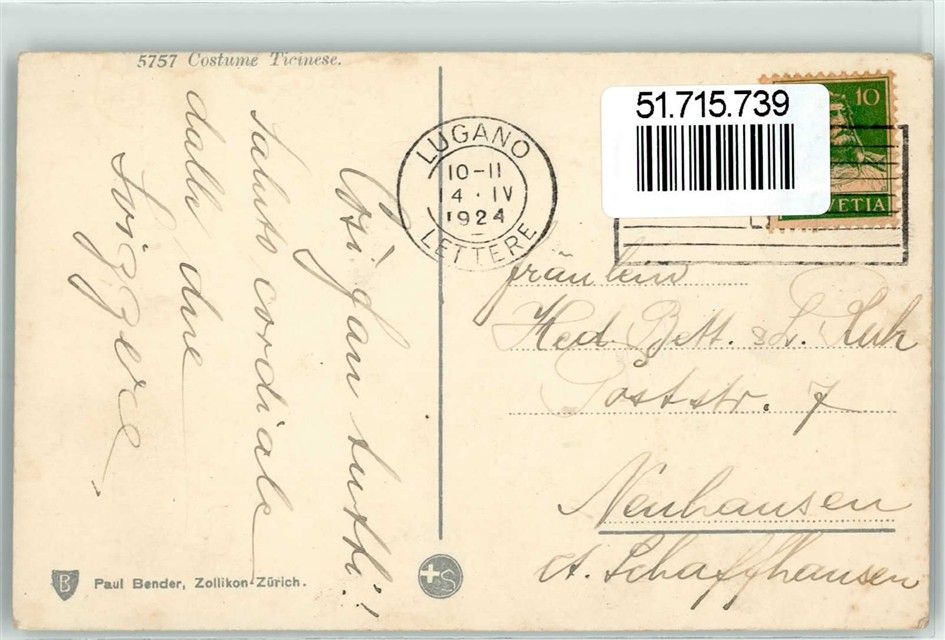 5757 Costume Ticinese.
Così fan tutti!
Saluto cordiale
dalle due
Svizzere
LUGANO
10-11
14 · IV
1924
LETTERE
51.715.739
10
HELVETIA
Fräulein
Hed. Bett. & L. Ruh
Poststr. 7
Neuhausen
ct. Schaffhausen
B
Paul Bender, Zollikon-Zürich.
S